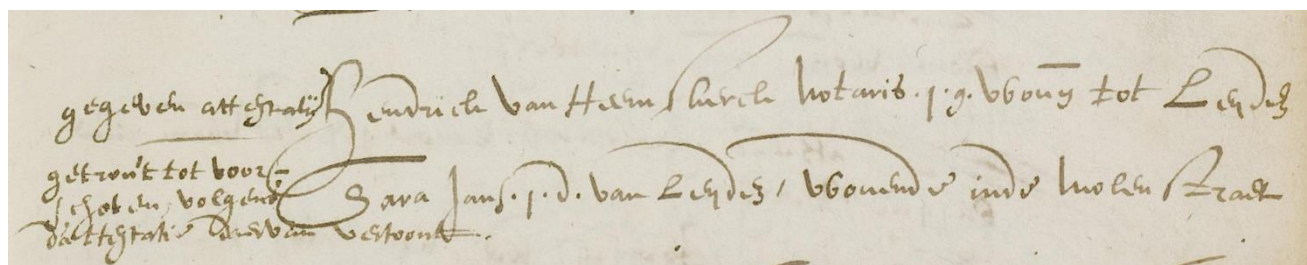 gegeven attestatij
Hendrick van Heemskerck Notaris. j. g. wonen tot Leyden
getrout tot voor-
schoten, volgens
d'attestatie daervan vertoont.
Sara Jans. j. d. van Leyden, wonende inde Molenstraet